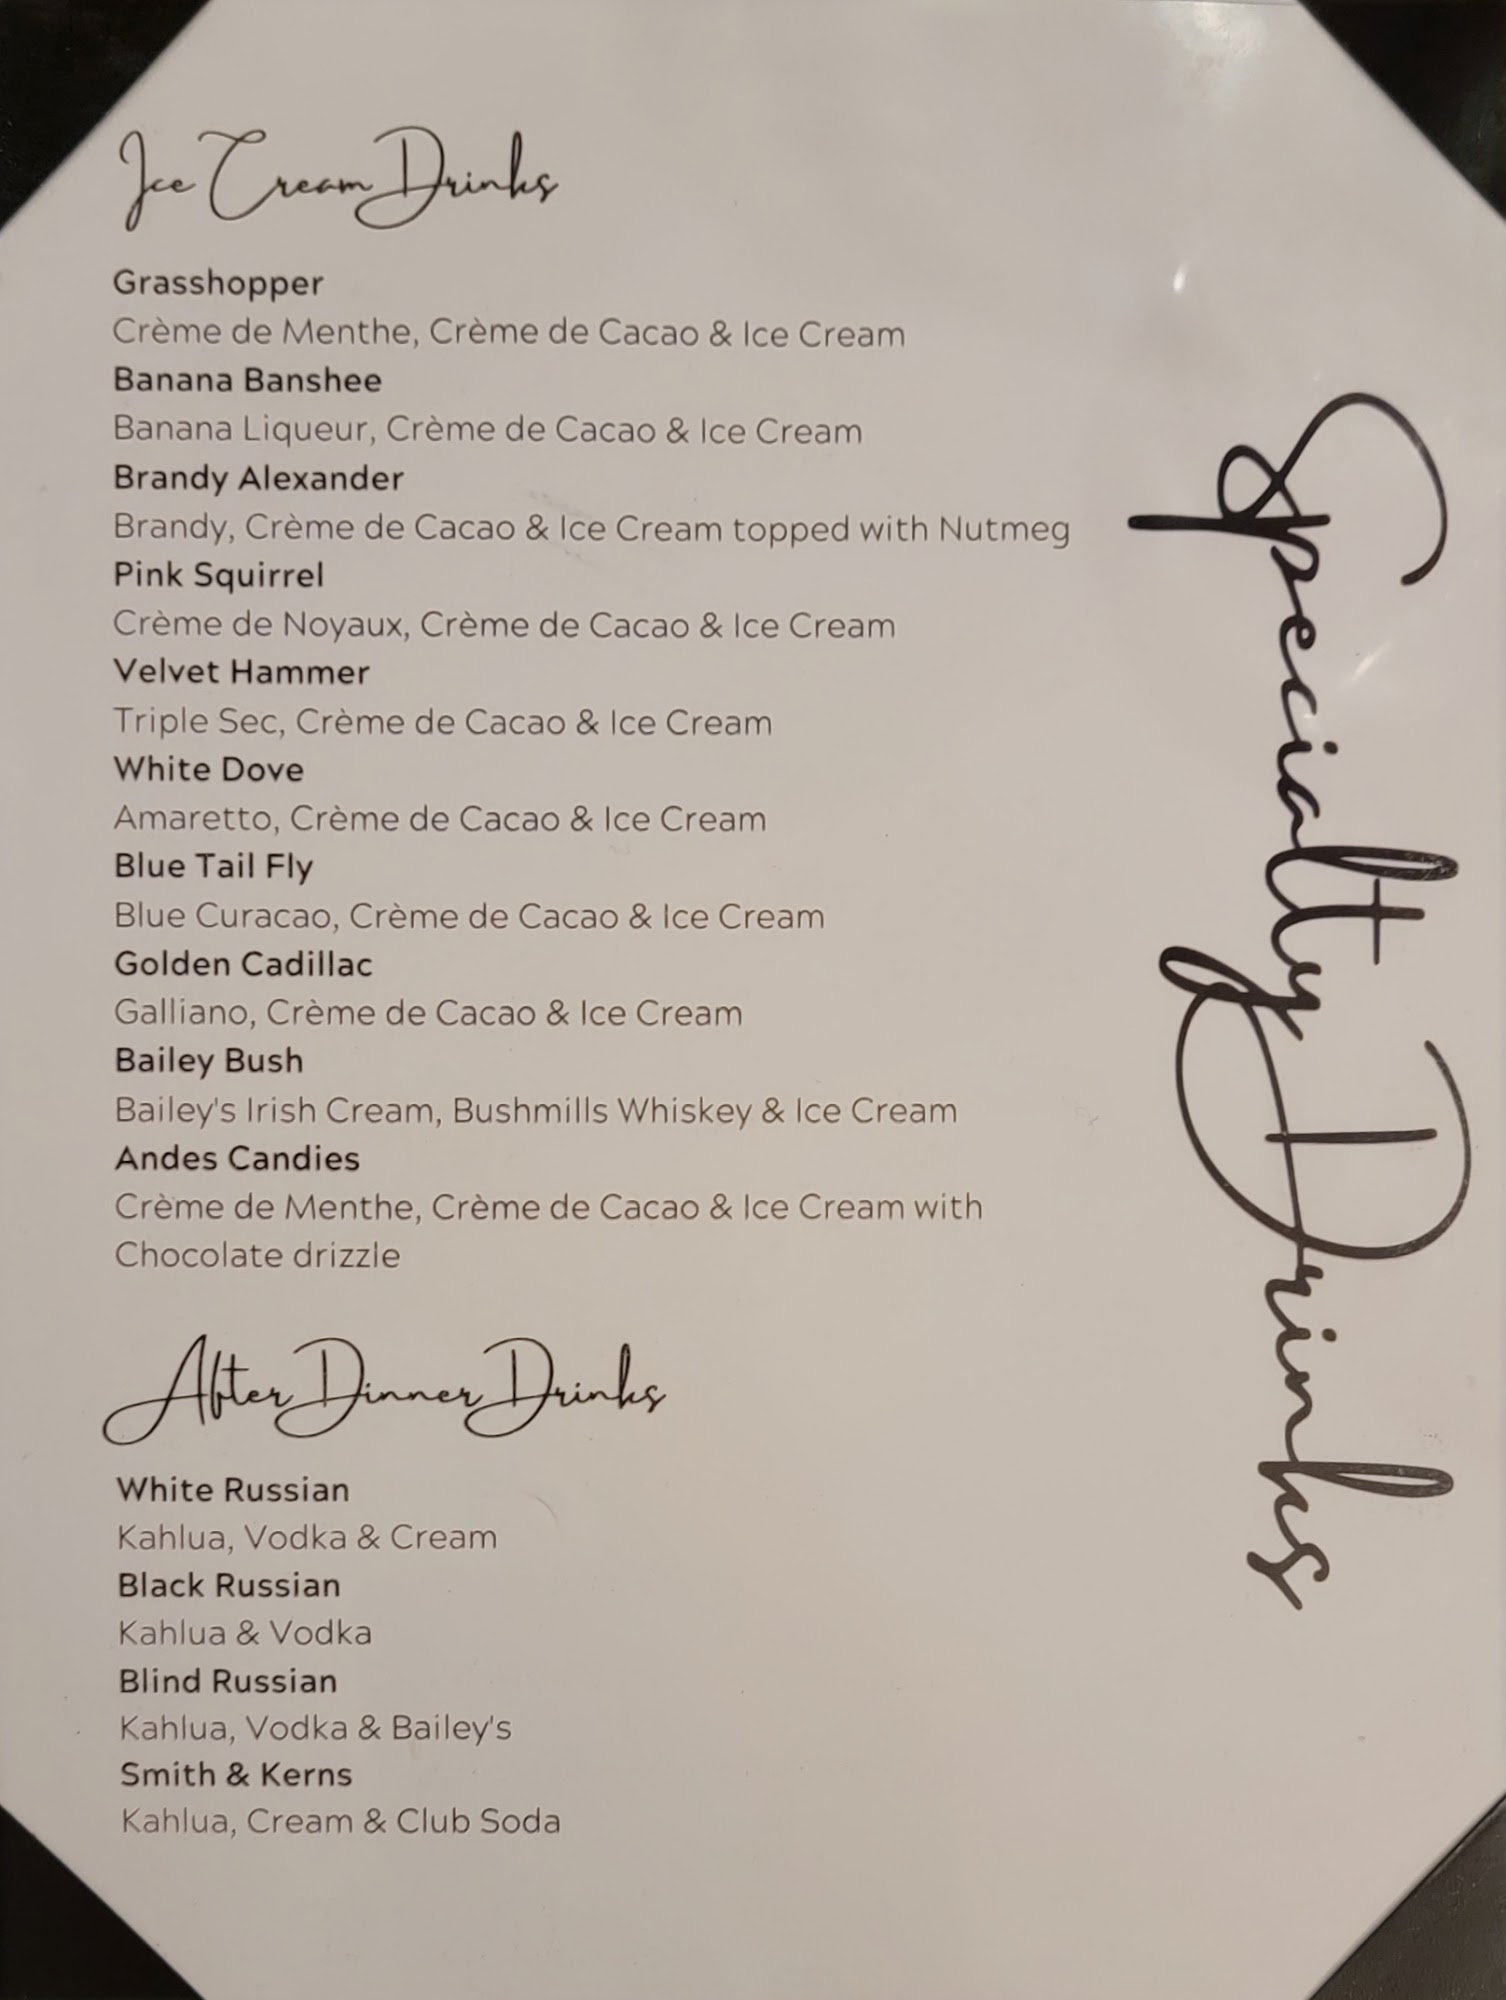 Ice Cream Drinks
Grasshopper
Crème de Menthe, Crème de Cacao & Ice Cream
Banana Banshee
Banana Liqueur, Crème de Cacao & Ice Cream
Brandy Alexander
Brandy, Crème de Cacao & Ice Cream topped with Nutmeg
Pink Squirrel
Crème de Noyaux, Crème de Cacao & Ice Cream
Velvet Hammer
Triple Sec, Crème de Cacao & Ice Cream
White Dove
Amaretto, Crème de Cacao & Ice Cream
Blue Tail Fly
Blue Curacao, Crème de Cacao & Ice Cream
Golden Cadillac
Galliano, Crème de Cacao & Ice Cream
Bailey Bush
Bailey's Irish Cream, Bushmills Whiskey & Ice Cream
Andes Candies
Crème de Menthe, Crème de Cacao & Ice Cream with
Chocolate drizzle
After Dinner Drinks
White Russian
Kahlua, Vodka & Cream
Black Russian
Kahlua & Vodka
Blind Russian
Kahlua, Vodka & Bailey's
Smith & Kerns
Kahlua, Cream & Club Soda
Specialty Drinks